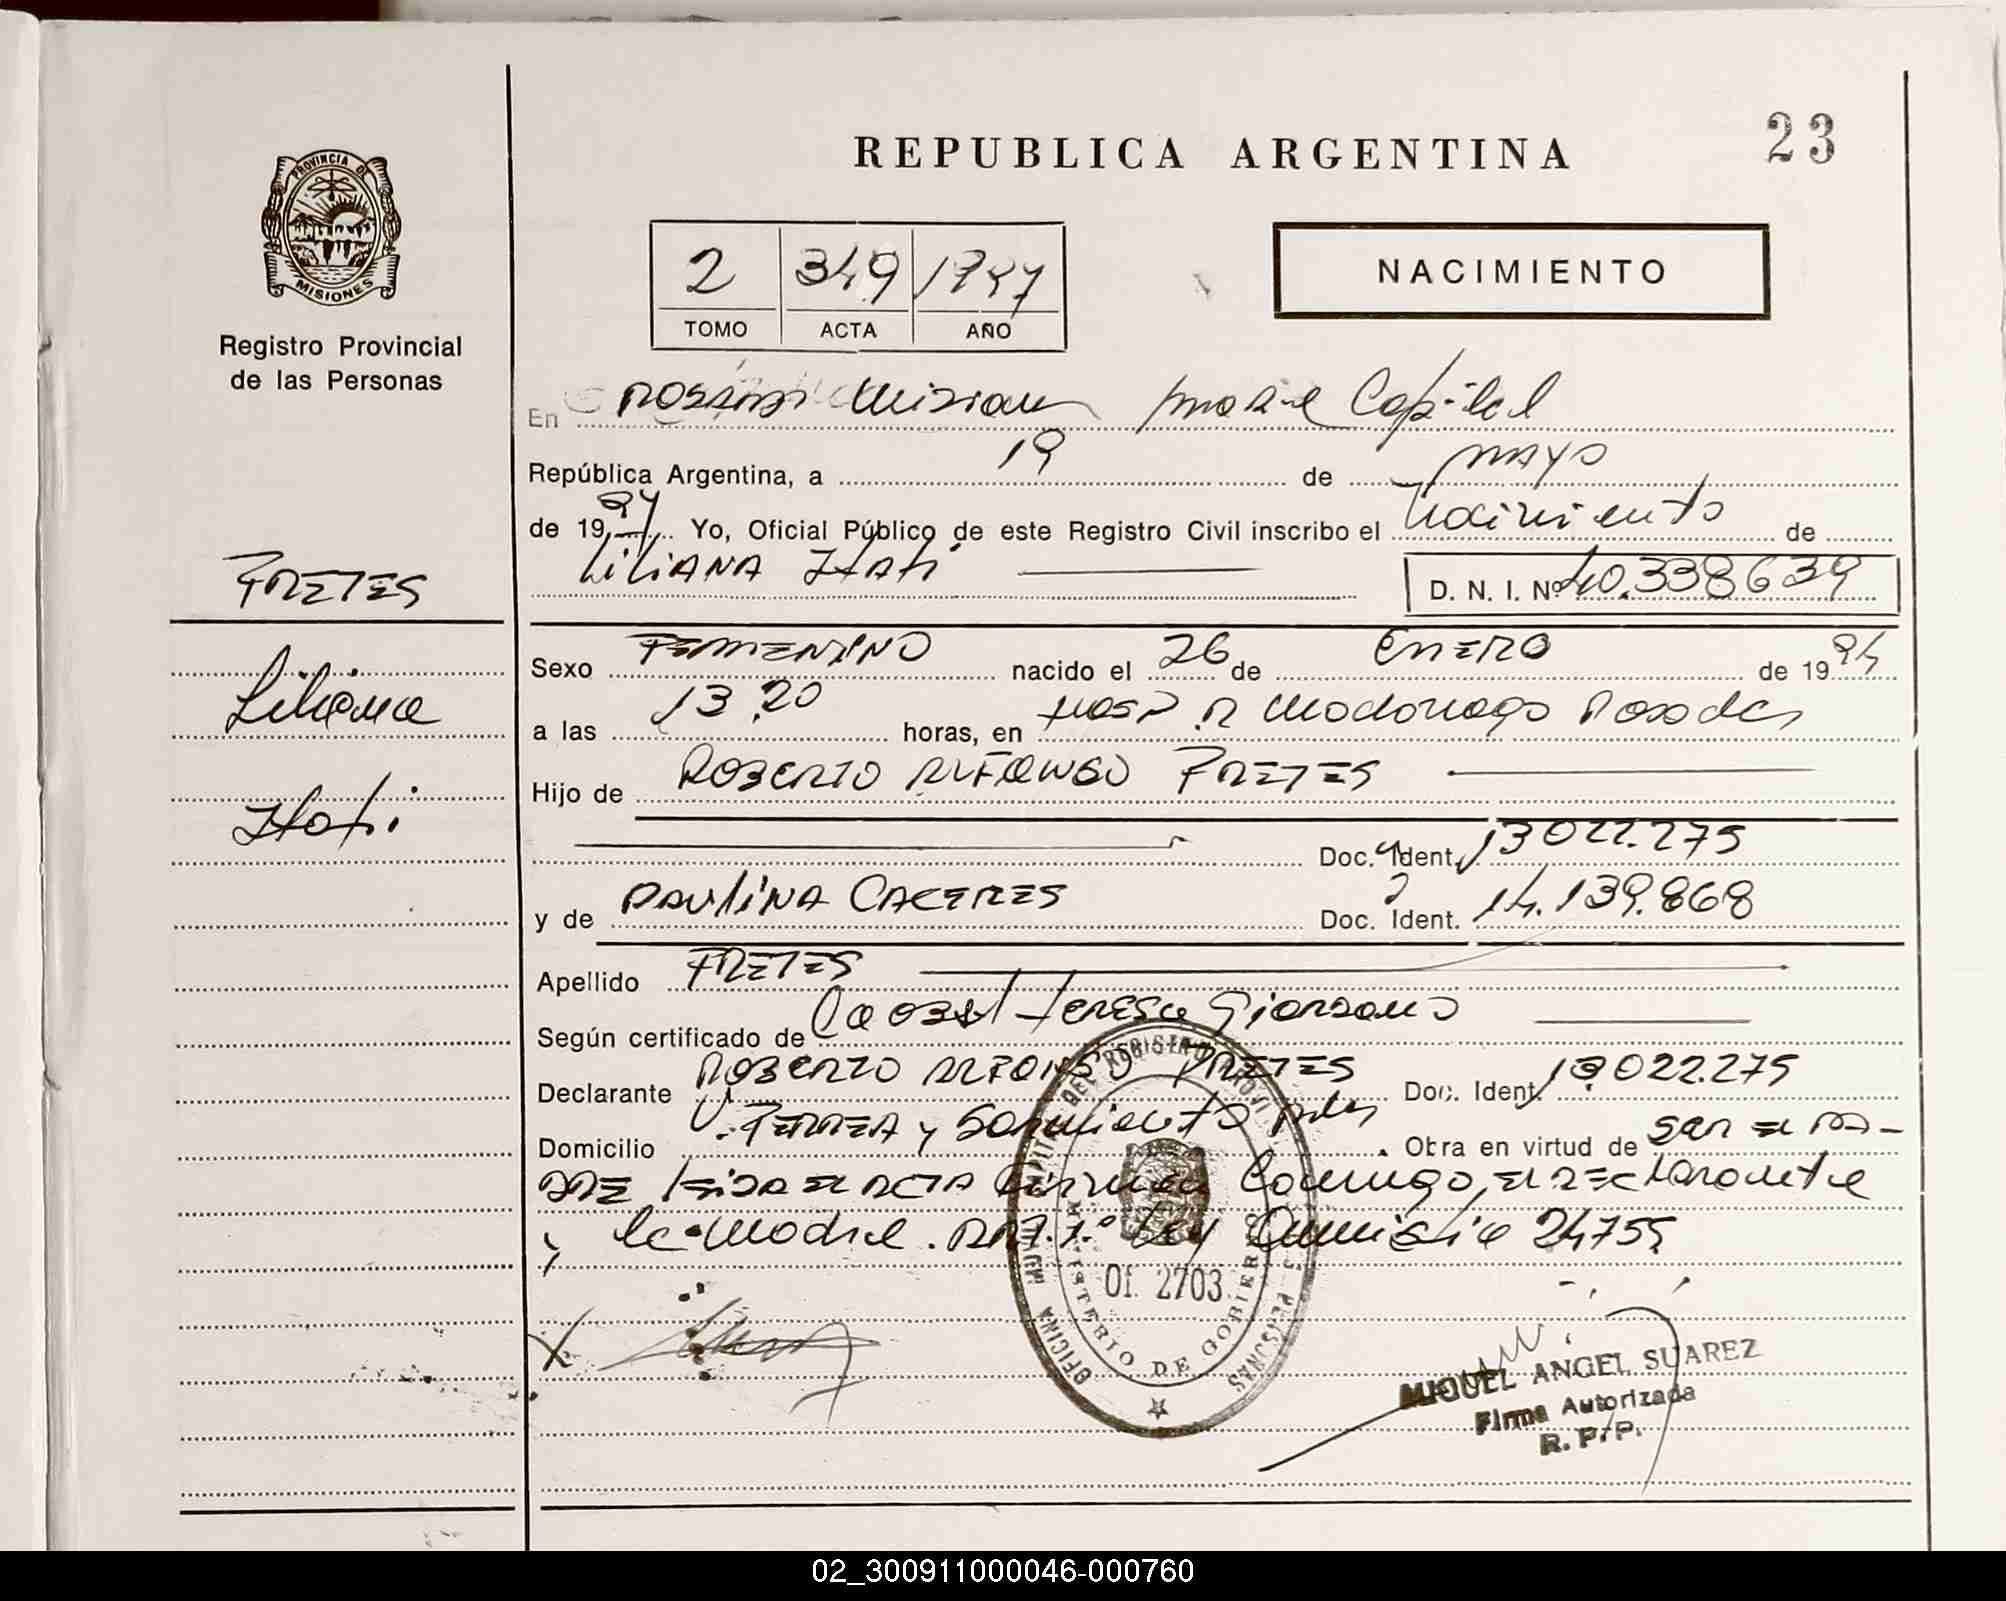 REPUBLICA ARGENTINA
23
PROVINCIA DE
MISIONES
Registro Provincial
de las Personas
2 349 1997
TOMO ACTA AÑO
NACIMIENTO
En Posadas Misiones Capital
República Argentina, a 19 de mayo
de 1997 Yo, Oficial Público de este Registro Civil inscribo el Nacimiento de
LiLiANA Itati
D. N. I. Nº 40.338639
FRETES
Liliana
Itati
Sexo FEMENINO nacido el 26 de ENERO de 1994
a las 13,20 horas, en Hosp R Madariaga Posadas
Hijo de ROBERTO ALFONSO FRETES
Doc. Ident. 13022.275
y de PAULINA CACERES Doc. Ident. 14.139.868
Apellido FRETES
Según certificado de Teresa Giordano
Declarante ROBERTO ALFONSO FRETES Doc. Ident. 13.022.275
Domicilio y Sarmiento Obra en virtud de SER EL PA-
DRE Leida EL ACTA Firman Conmigo, El Declarante
y la Madre. ART. 1º Ley Amnistia 24755
Of. 2703
MINISTERIO DE GOBIERNO
MIGUEL ANGEL SUAREZ
Firma Autorizada
R. P. P.
02_300911000046-000760